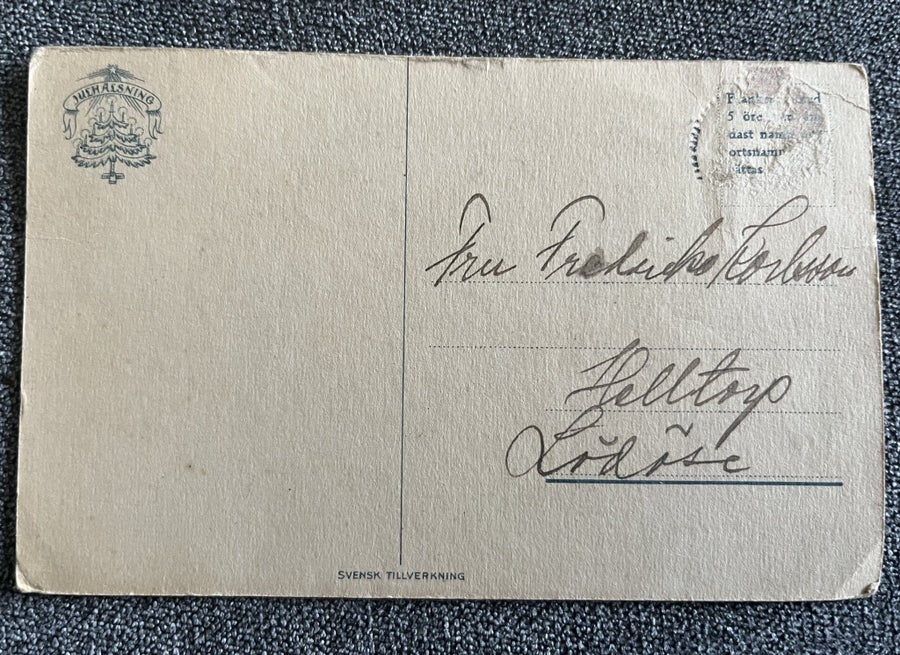 JULHÄLSNING
Frankeras med
5 öre
dast namn
ortsnamn
Fru Fredrika Karlsson
Helltorp
Lödöse
SVENSK TILLVERKNING